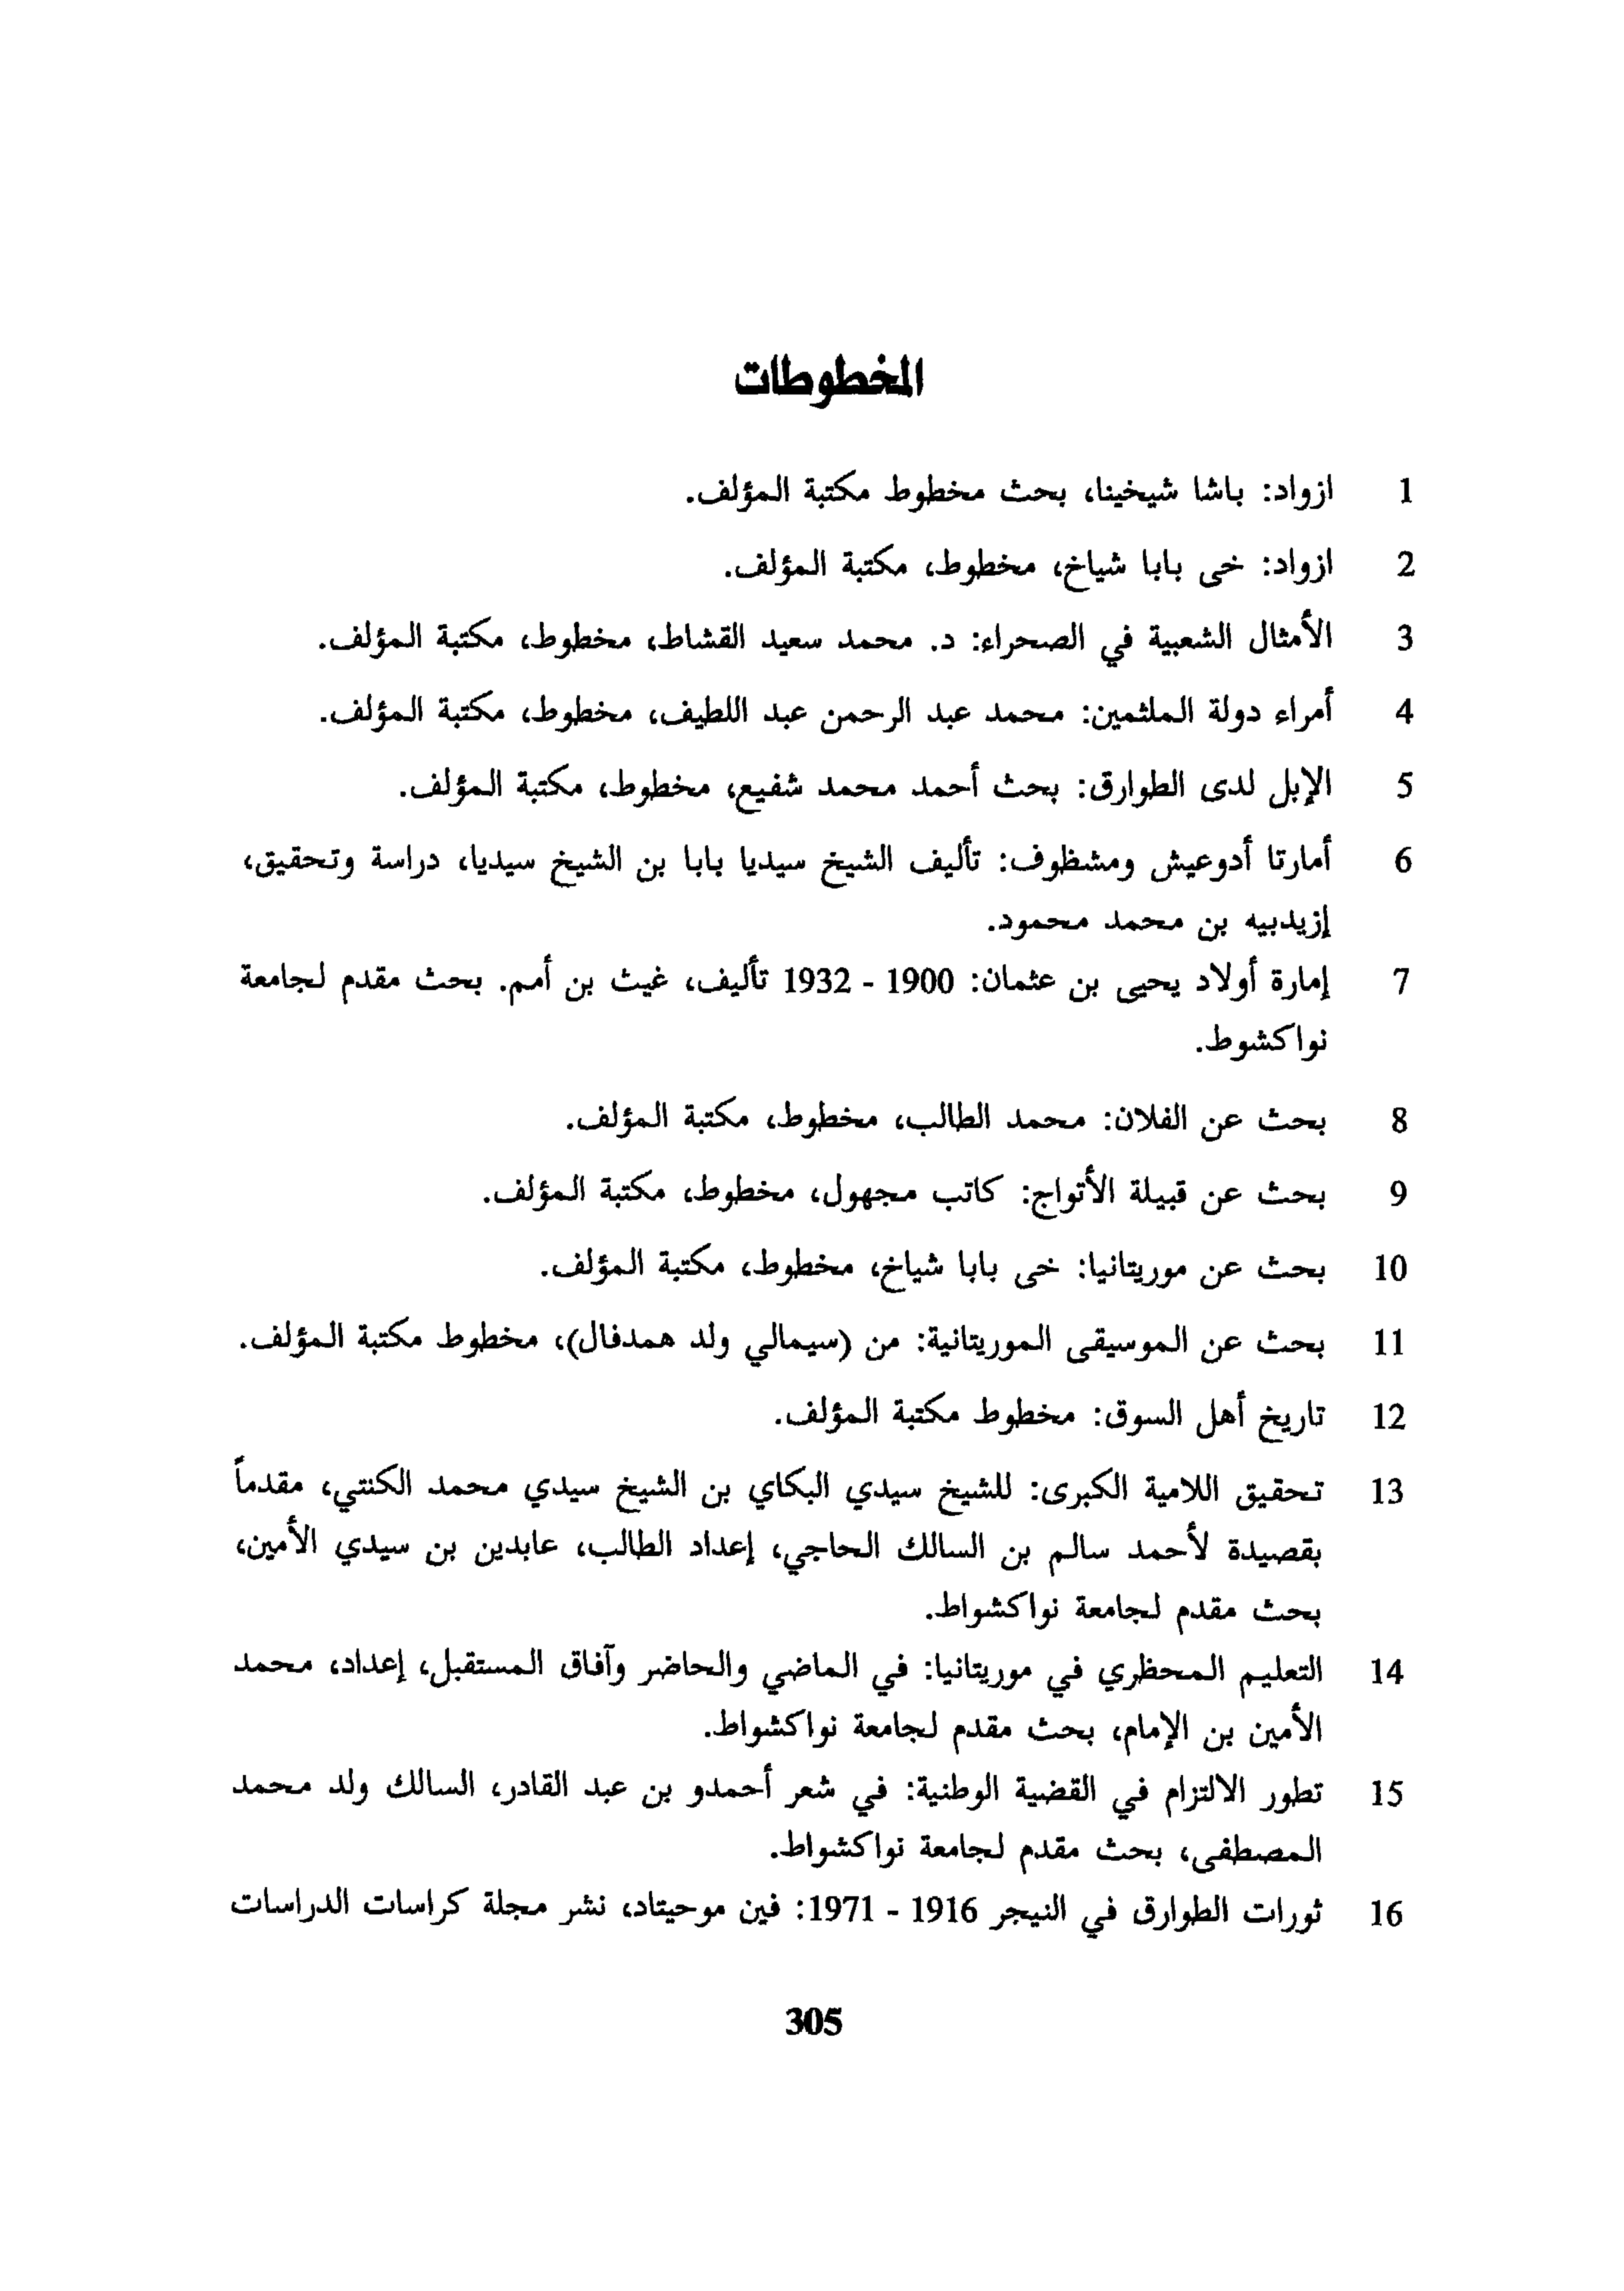 المخطوطات
1 ازواد: باشا شيخينا، بحث مخطوط مكتبة المؤلف.
2 ازواد: خى بابا شياخ، مخطوط، مكتبة المؤلف.
3 الأمثال الشعبية في الصحراء: د. محمد سعيد القشاط، مخطوط، مكتبة المؤلف.
4 أمراء دولة الملثمين: محمد عبد الرحمن عبد اللطيف، مخطوط، مكتبة المؤلف.
5 الإبل لدى الطوارق: بحث أحمد محمد شفيع، مخطوط، مكتبة المؤلف.
6 أمارتا أدوعيش ومشظوف: تأليف الشيخ سيديا بابا بن الشيخ سيديا، دراسة وتحقيق،
إزيدبيه بن محمد محمود.
7 إمارة أولاد يحيى بن عثمان: 1900 - 1932 تأليف، غيث بن أمم. بحث مقدم لجامعة
نواكشوط.
8 بحث عن الفلان: محمد الطالب، مخطوط، مكتبة المؤلف.
9 بحث عن قبيلة الأتواج: كاتب مجهول، مخطوط، مكتبة المؤلف.
10 بحث عن موريتانيا: خى بابا شياخ، مخطوط، مكتبة المؤلف.
11 بحث عن الموسيقى الموريتانية: من (سيمالي ولد همدفال)، مخطوط مكتبة المؤلف.
12 تاريخ أهل السوق: مخطوط مكتبة المؤلف.
13 تحقيق اللامية الكبرى: للشيخ سيدي البكاي بن الشيخ سيدي محمد الكنتي، مقدماً
بقصيدة لأحمد سالم بن السالك الحاجي، إعداد الطالب، عابدين بن سيدي الأمين،
بحث مقدم لجامعة نواكشواط.
14 التعليم المحظري في موريتانيا: في الماضي والحاضر وآفاق المستقبل، إعداد، محمد
الأمين بن الإمام، بحث مقدم لجامعة نواكشواط.
15 تطور الالتزام في القضية الوطنية: في شعر أحمدو بن عبد القادر، السالك ولد محمد
المصطفى، بحث مقدم لجامعة نواكشواط.
16 ثورات الطوارق في النيجر 1916 - 1971: فين موحيتاد، نشر مجلة كراسات الدراسات
305